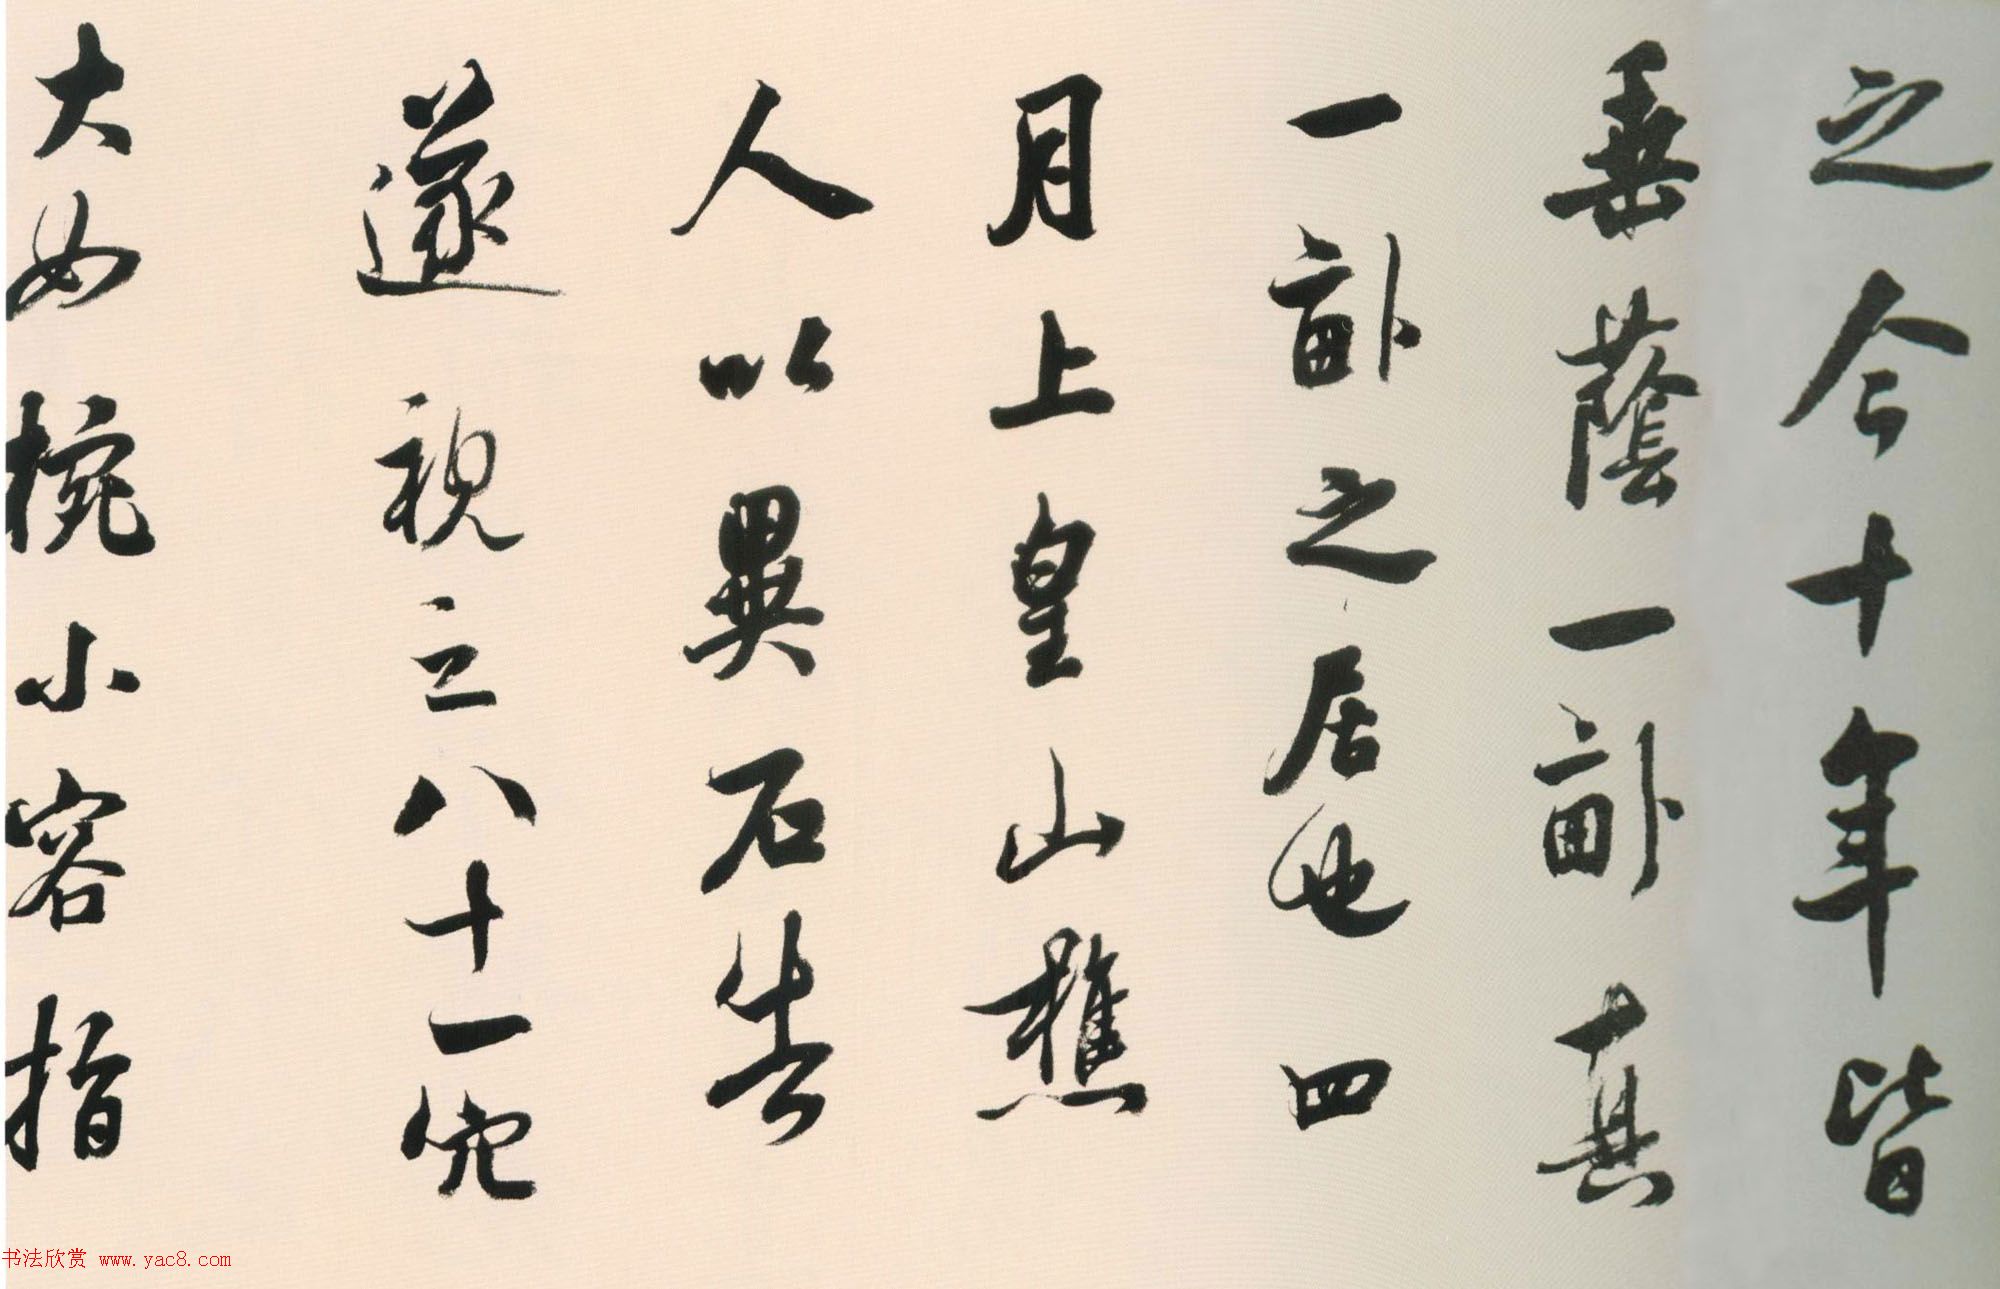 之今十年皆
垂蔭一畝真
一畝之居也四
月上皇山樵
人以異石告
遂視之八十一穴
大如椀小容指
书法欣赏 www.yac8.com